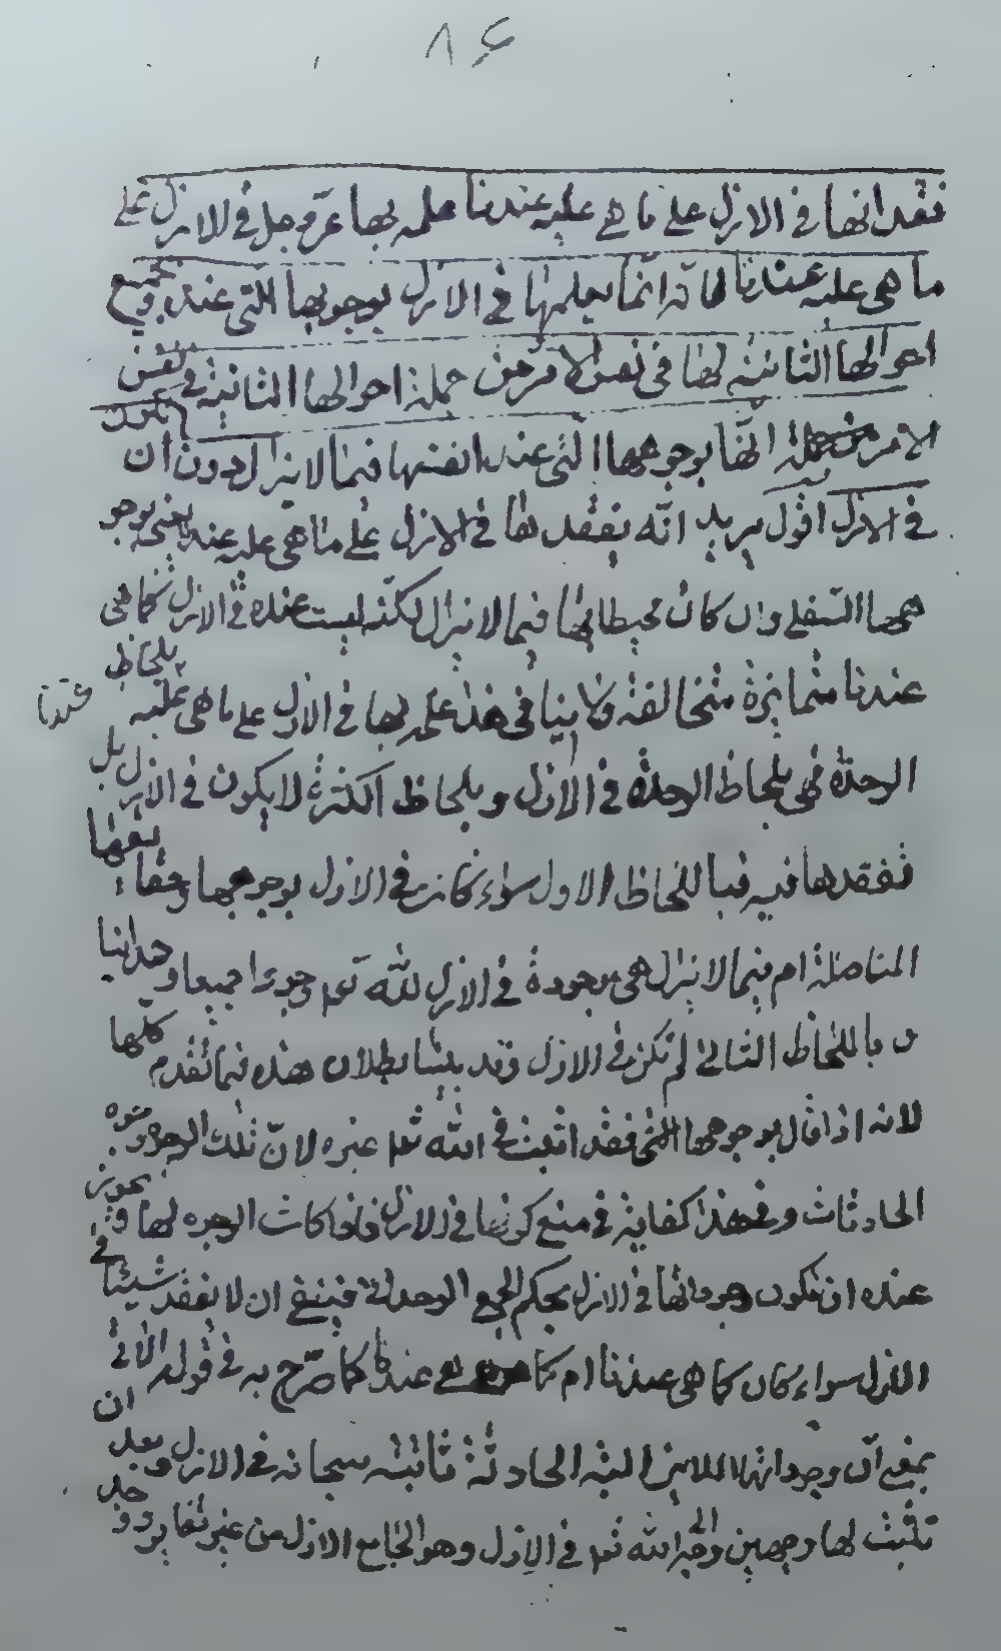 ٨٤
فقدانها في الازل على ما هي عليه عندنا علمه بها عز وجل في الازل على
ما هي عليه عندنا لانه انما يعلمها في الازل بوجوهها التي عنده وبجميع
احوالها الثابتة لها في نفس الامر ومن جملة احوالها الثابتة في نفس
الامر انها بوجوهها التي عند انفسها فيما لا يزال دون ان تكون
في الازل اقول يريد انه يفقدها في الازل على ما هي عليه عندنا يعني بوجو
هها السفلى وان كان محيطا بها فيما لا يزال لكنه ليست عنده في الازل كما هي
عندنا متمايزة متخالفة ولا ينافي هذا علمه بها في الازل على ما هي عليه عندنا بلحاظ
الوحدة فهي بلحاظ الوحدة في الازل وبلحاظ الكثرة لا يكون في الازل بل
فقدها فيه فباللحاظ الاول سواء كانت في الازل بوجوهها وحقايقها
المتاصلة ام فيما لا يزال هي موجودة في الازل لله تعالى وجودا جمعيا وحدانيا
وباللحاظ الثاني لم تكن في الازل وقد بينا بطلان هذه فيما تقدم كلها
لانه اذا قال بوجوهها فقد اثبت في الله تعالى غيره لان تلك الوجوه وجوه
الحادثات وفي هذا كفاية في منع كونها في الازل فاذا كانت الوجوه لها ويجوز
عنده ان تكون وجوداتها في الازل بحكم الجمع الوحداني فينبغي ان لا يفقد شيئا في
الازل سواء كان كما هي عندنا ام كما هي عنده كما صرح به في قوله الاتي
بمعنى ان وجوداتها اللايزالية الحادثة ثابتة سبحانه في الازل وبعد ان
تثبت لها وجهين والى الله تعالى في الازل وهو الجامع الازل من غير تغاير ووجه